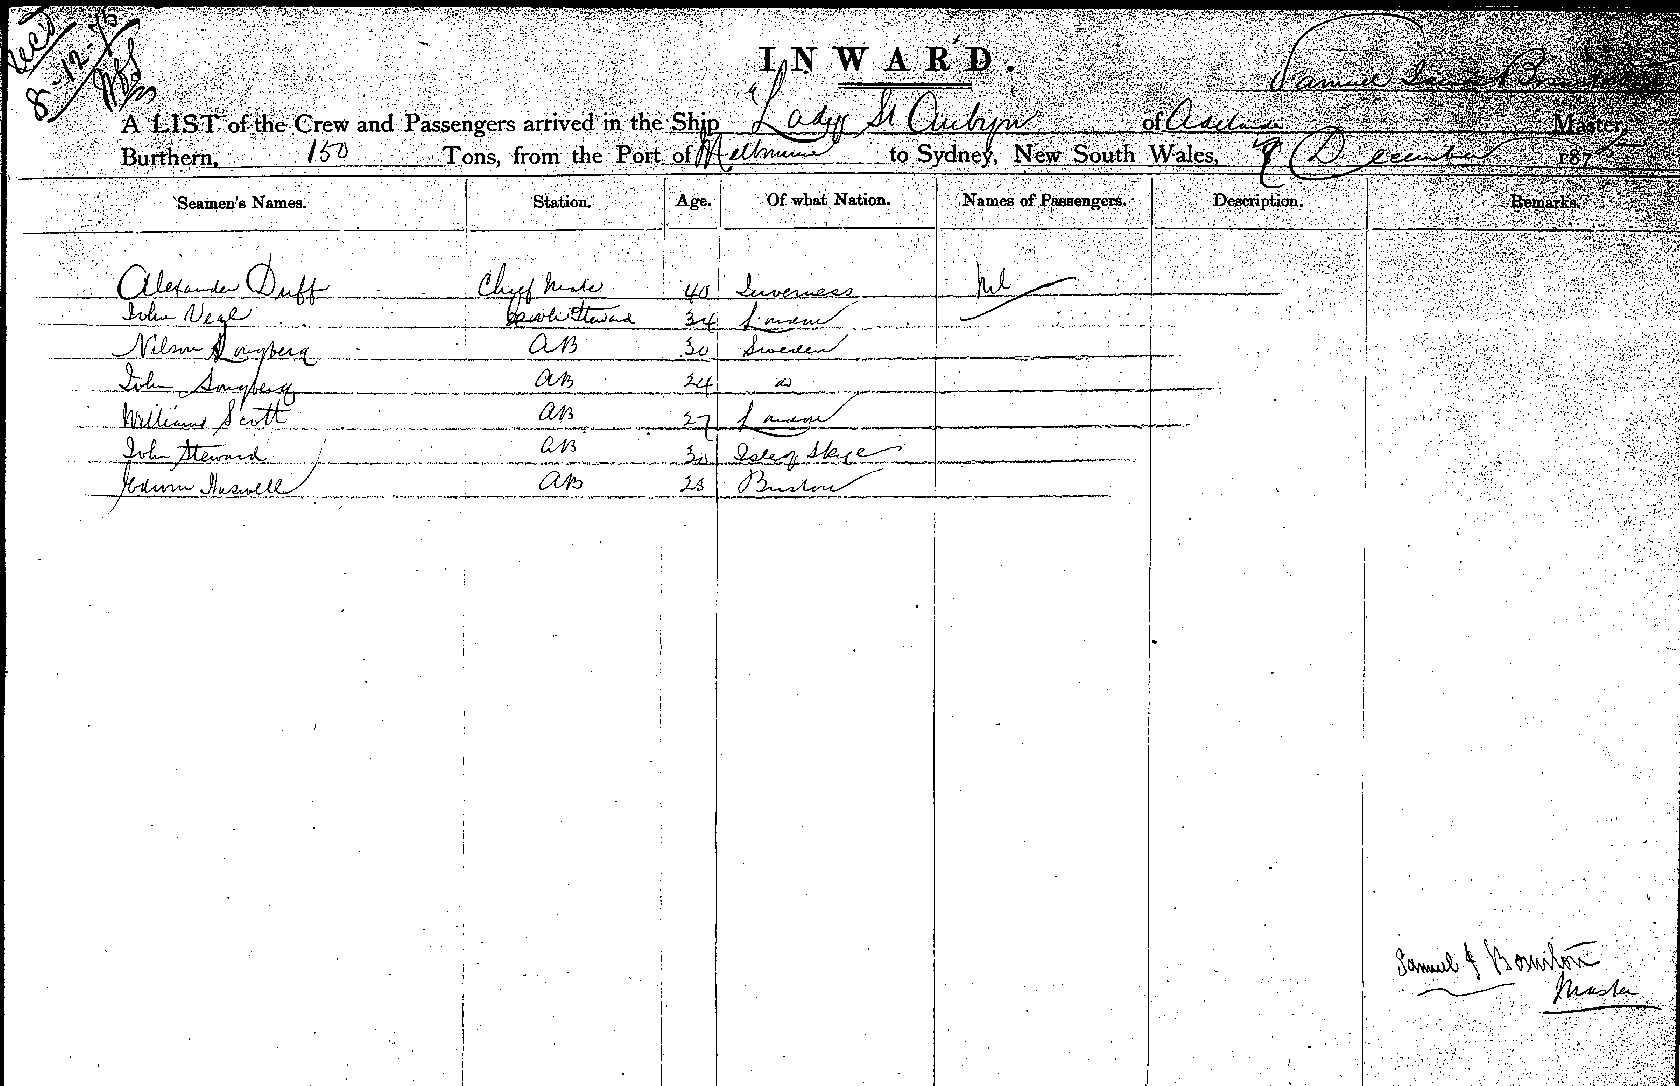 Recd
8-12-75
INWARD.
Samuel
A LIST of the Crew and Passengers arrived in the Ship Lady St Aubyn of Adelaide Master,
Burthern, 150 Tons, from the Port of Melbourne to Sydney, New South Wales, December 187
Seamen's Names. Station. Age. Of what Nation. Names of Passengers. Description. Remarks.
Alexander Duff Chief Mate 40 Inverness Nil
John Steward 34 London
Nilson AB 30 Sweden
John AB 24 do
William Scott AB 27 London
John Steward AB 30 Isle of Skye
Edwin Haswell AB 23 Bristow
Samuel J
Master